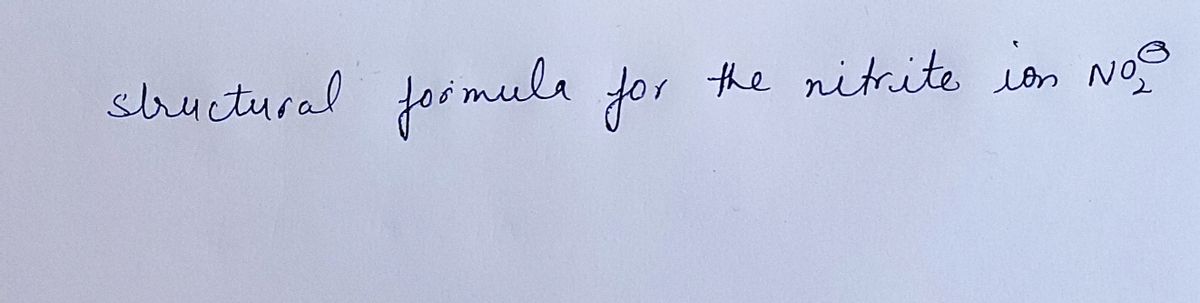 structural formula for the nitrite ion NO₂⊖